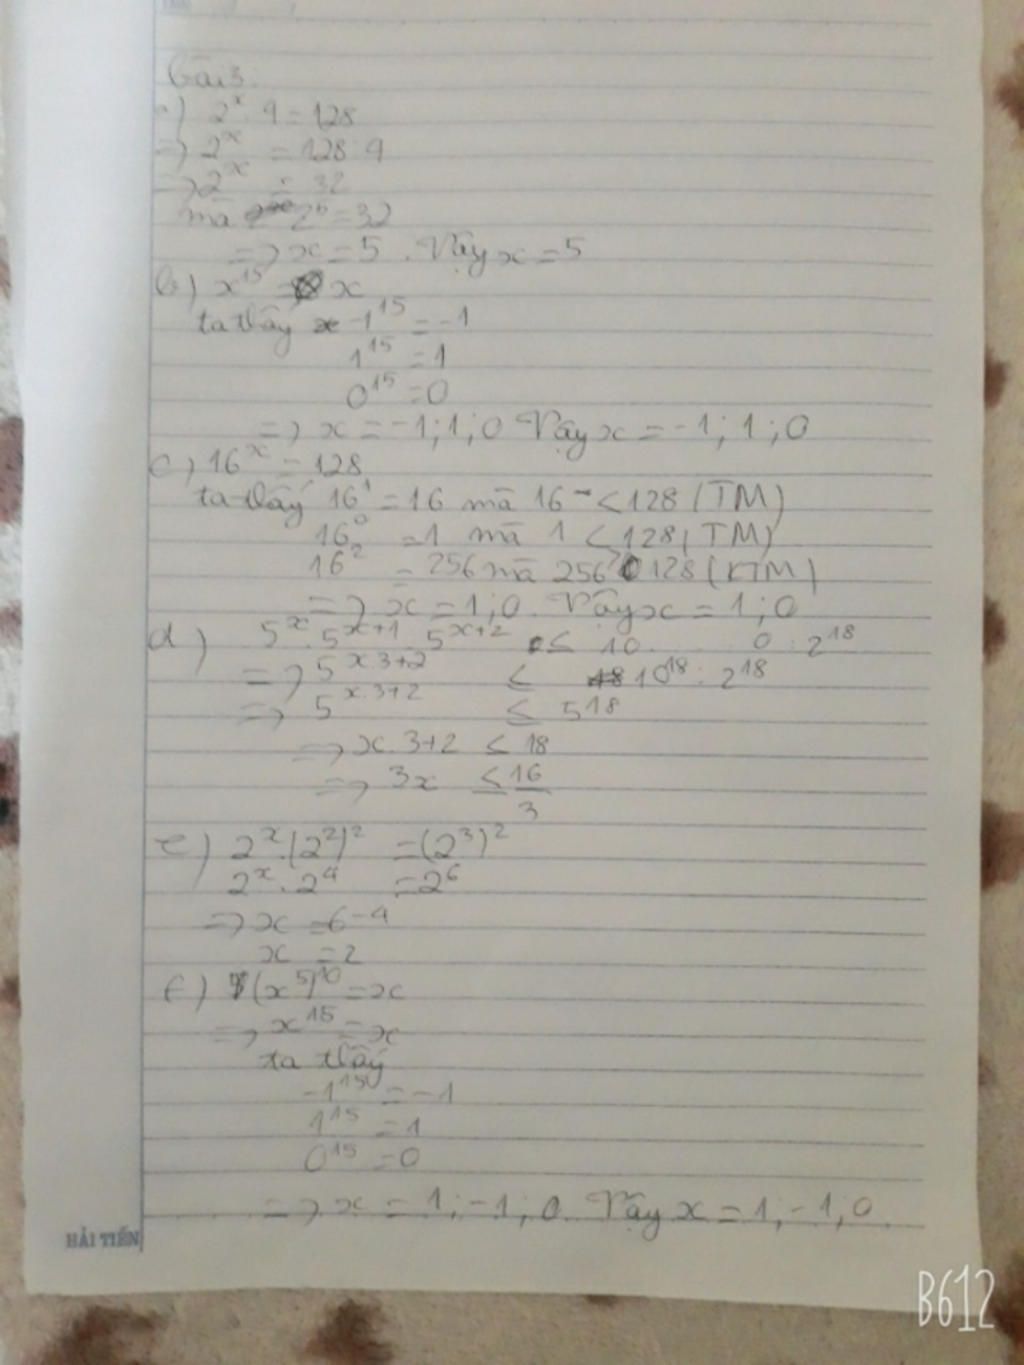 bài 3:
a) 2^x . 4 = 128
=> 2^x = 128 : 4
=> 2^x = 32
mà 2^5 = 32
=> x = 5 . Vậy x = 5
b) x^15 = x
ta thấy -1^15 = -1
1^15 = 1
0^15 = 0
=> x = -1 ; 1 ; 0 Vậy x = -1 ; 1 ; 0
c) 16^x = 128
ta thấy 16^1 = 16 mà 16 < 128 (TM)
16^0 = 1 mà 1 < 128 (TM)
16^2 = 256 mà 256 > 128 (KTM)
=> x = 1 ; 0 . Vậy x = 1 ; 0
d) 5^x . 5^x+1 . 5^x+2 ≤ 10 ... 0 : 2^18
=> 5^x.3+2 ≤ 10^18 : 2^18
=> 5^x.3+2 ≤ 5^18
=> x . 3 + 2 ≤ 18
=> 3x ≤ 16/3
e) 2^x . (2^2)^2 = (2^3)^2
2^x . 2^4 = 2^6
=> x = 6 - 4
x = 2
f) (x^5)^10 = x
=> x^15 = x
ta thấy
-1^15 = -1
1^15 = 1
0^15 = 0
=> x = 1 ; -1 ; 0 . Vậy x = 1 ; -1 ; 0
HẢI TIẾN
B612